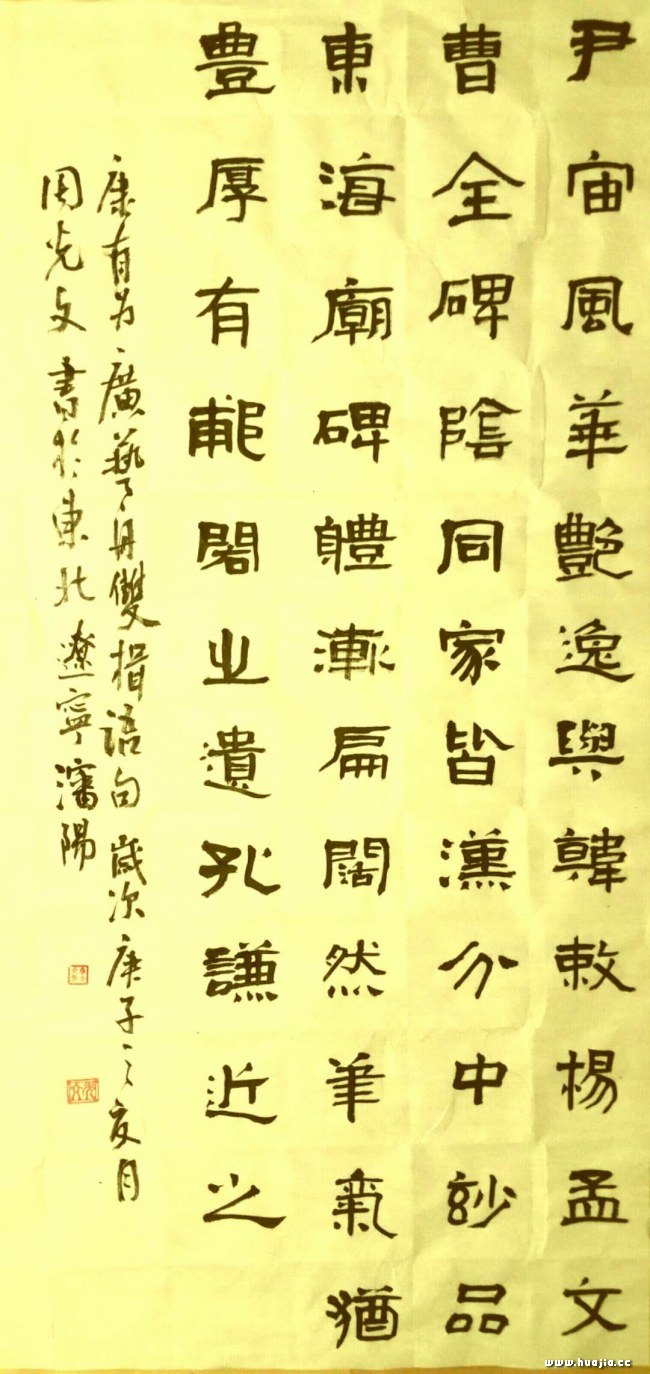 尹宙風華艷逸與韓敕楊孟文
曹全碑陰同家皆漢分中妙品
東海廟碑體漸扁闊然筆氣猶
豊厚有郙閣之遺孔謙近之
康有为廣藝舟雙楫語句歲次庚子之夏月
周光文書於東北遼寧瀋陽
www.huajia.cc